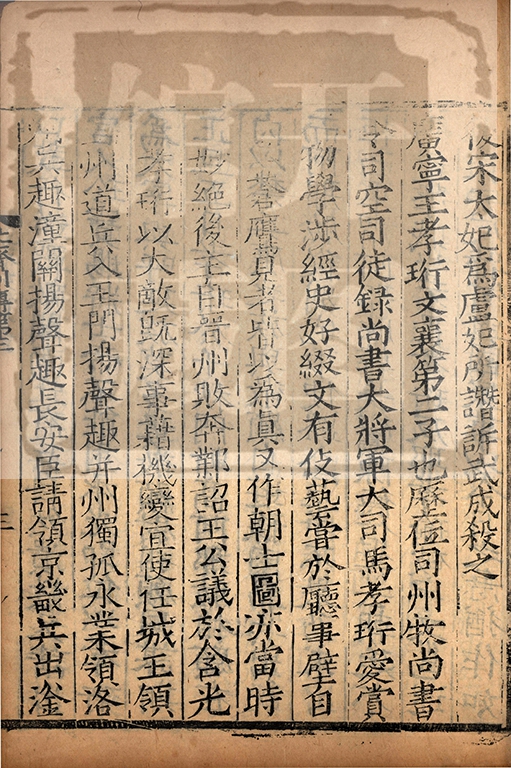 後宋太妃為盧妃所譖訴武成殺之
廣寧王孝珩文襄第二子也歷位司州牧尚書
令司空司徒録尚書大將軍大司馬孝珩愛賞
人物學涉經史好綴文有伎藝嘗於廳事壁自
畫蒼鷹見者皆以為真又作朝士圖亦當時
之妙絶後主自晉州敗奔鄴詔王公議於含光
孝珩以大敵既深事藉機變宜使任城王領
州道兵入土門揚聲趣并州獨孤永業領洛
兵趣潼關揚聲趣長安臣請領京畿兵出滏